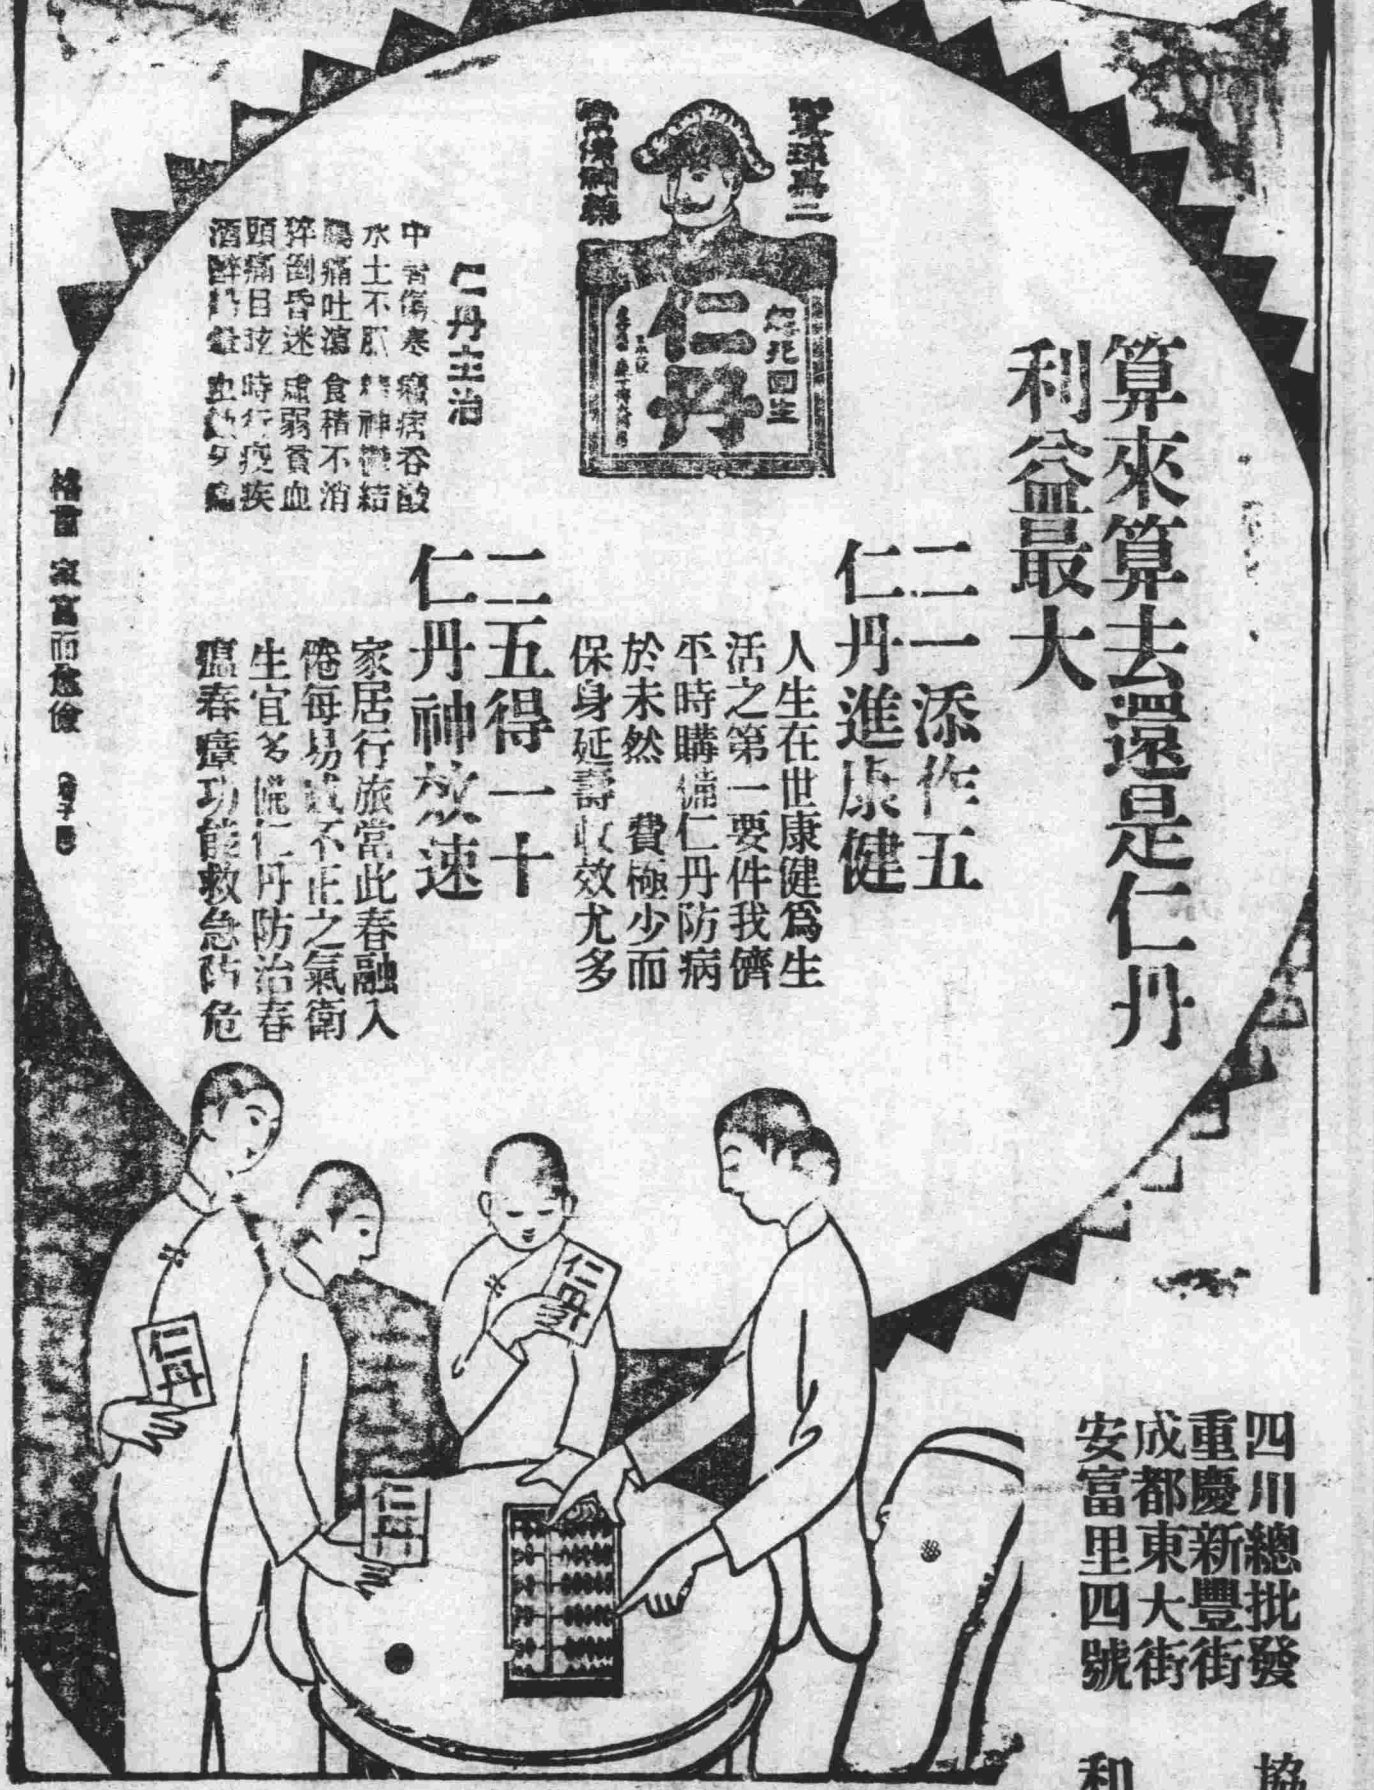 算來算去還是仁丹
利益最大
二一添作五
仁丹進康健
人生在世康健爲生
活之第一要件我儕
平時購備仁丹防病
於未然 費極少而
保身延壽收效尤多
二五得一十
仁丹神效速
家居行旅當此春融入
倦每易感不正之氣衛
生宜多備仁丹防治春
瘟春瘴功能救急防危
起死回生
仁丹
仁丹主治
中 傷寒 吞酸
水土不服 精神鬱結
腸痛吐瀉 食積不消
猝倒昏迷 虛弱貧血
頭痛目眩 時行疫疾
酒醉
格言 家富而愈儉
仁丹
仁丹
仁丹
四川總批發
重慶新豐街
成都東大街
安富里四號
協
和